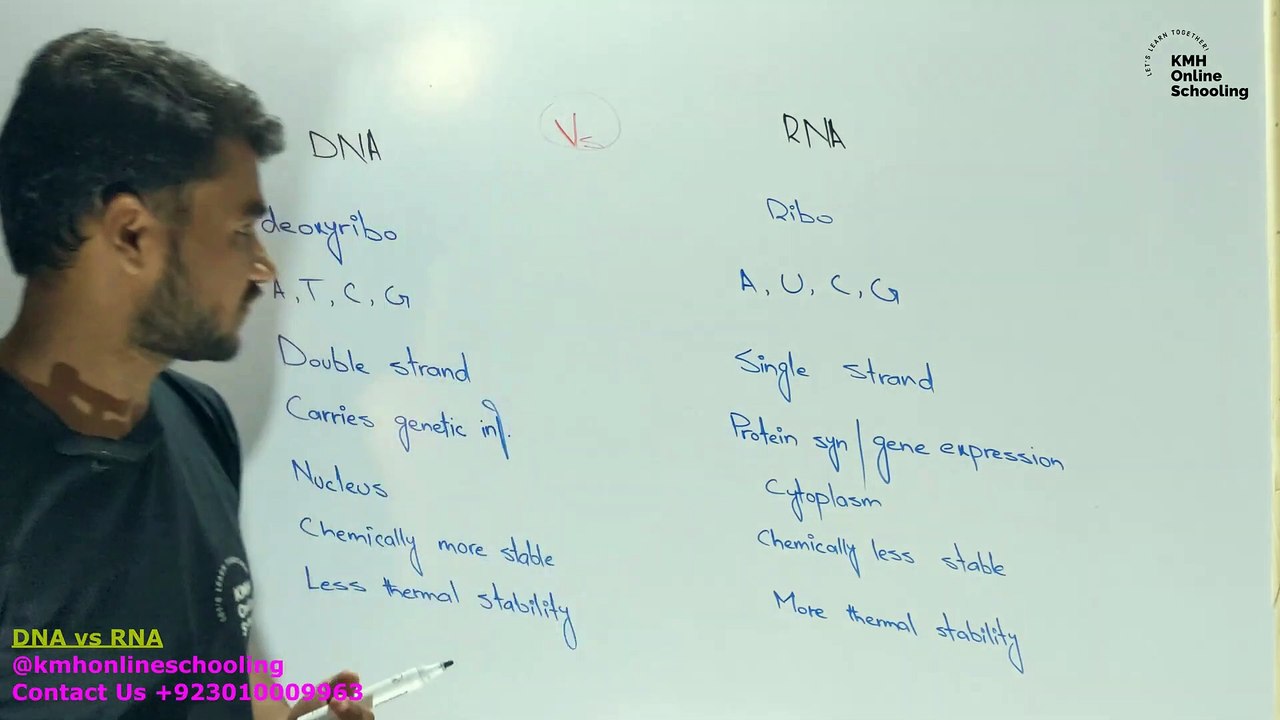 LET'S LEARN TOGETHER!
KMH
Online
Schooling
DNA Vs RNA
deoxyribo Ribo
A, T, C, G A, U, C, G
Double strand Single strand
Carries genetic inf. Protein syn / gene expression
Nucleus Cytoplasm
Chemically more stable Chemically less stable
Less thermal stability More thermal stability
DNA vs RNA
@kmhonlineschooling
Contact Us +923010009963